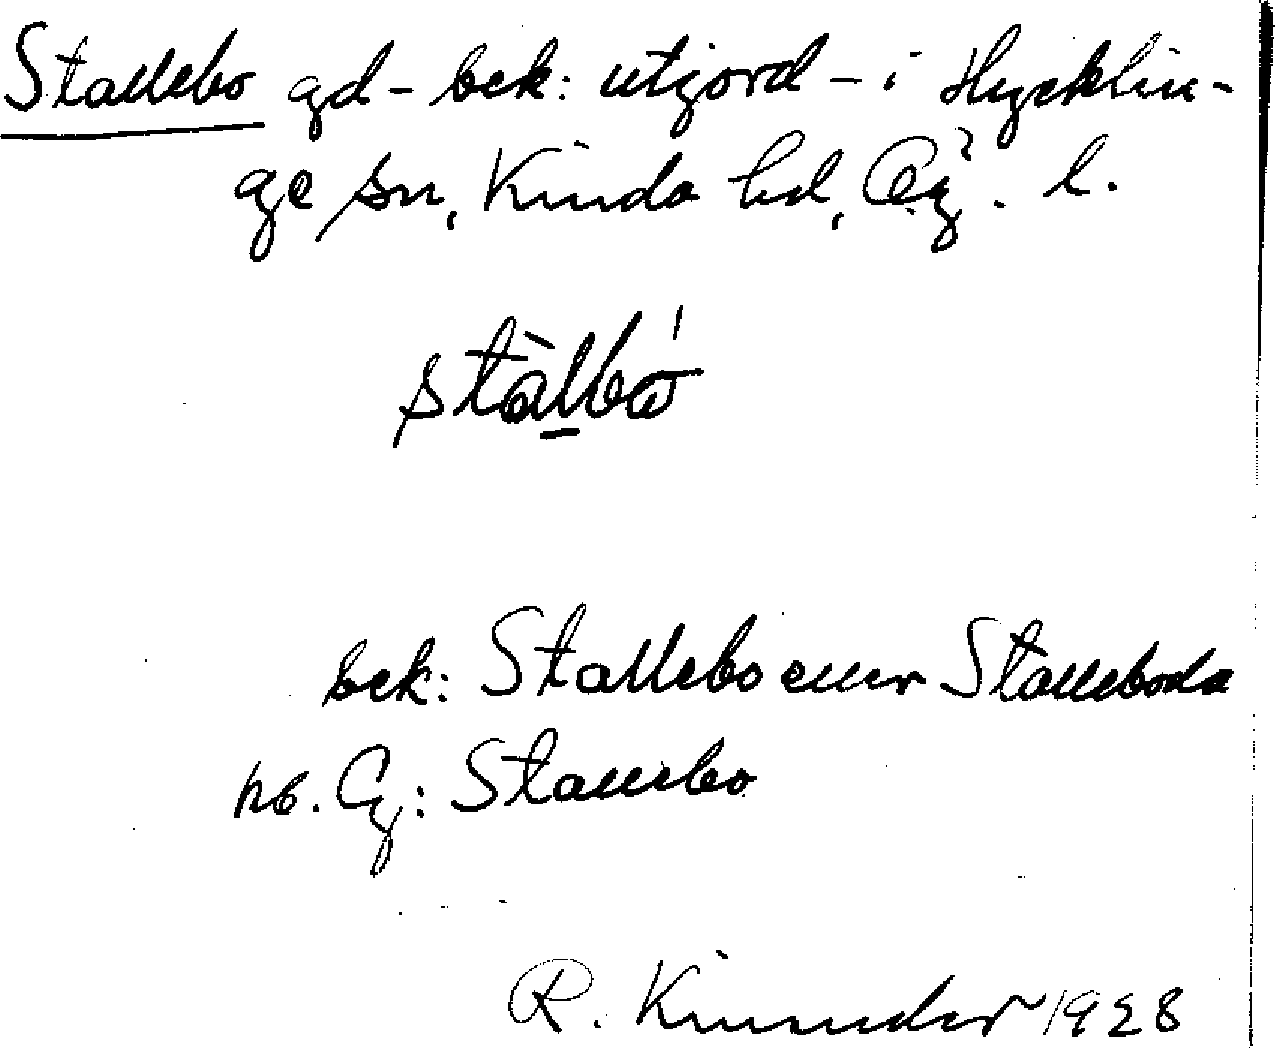 Stallebo gd - bek: utjord - i Hycklin-
ge sn, Kinda hd, Ög. l.
stàlbó
bek: Stallebo eller Stalleboda
hb. Eg: Stallebo
R. Kinnander 1928